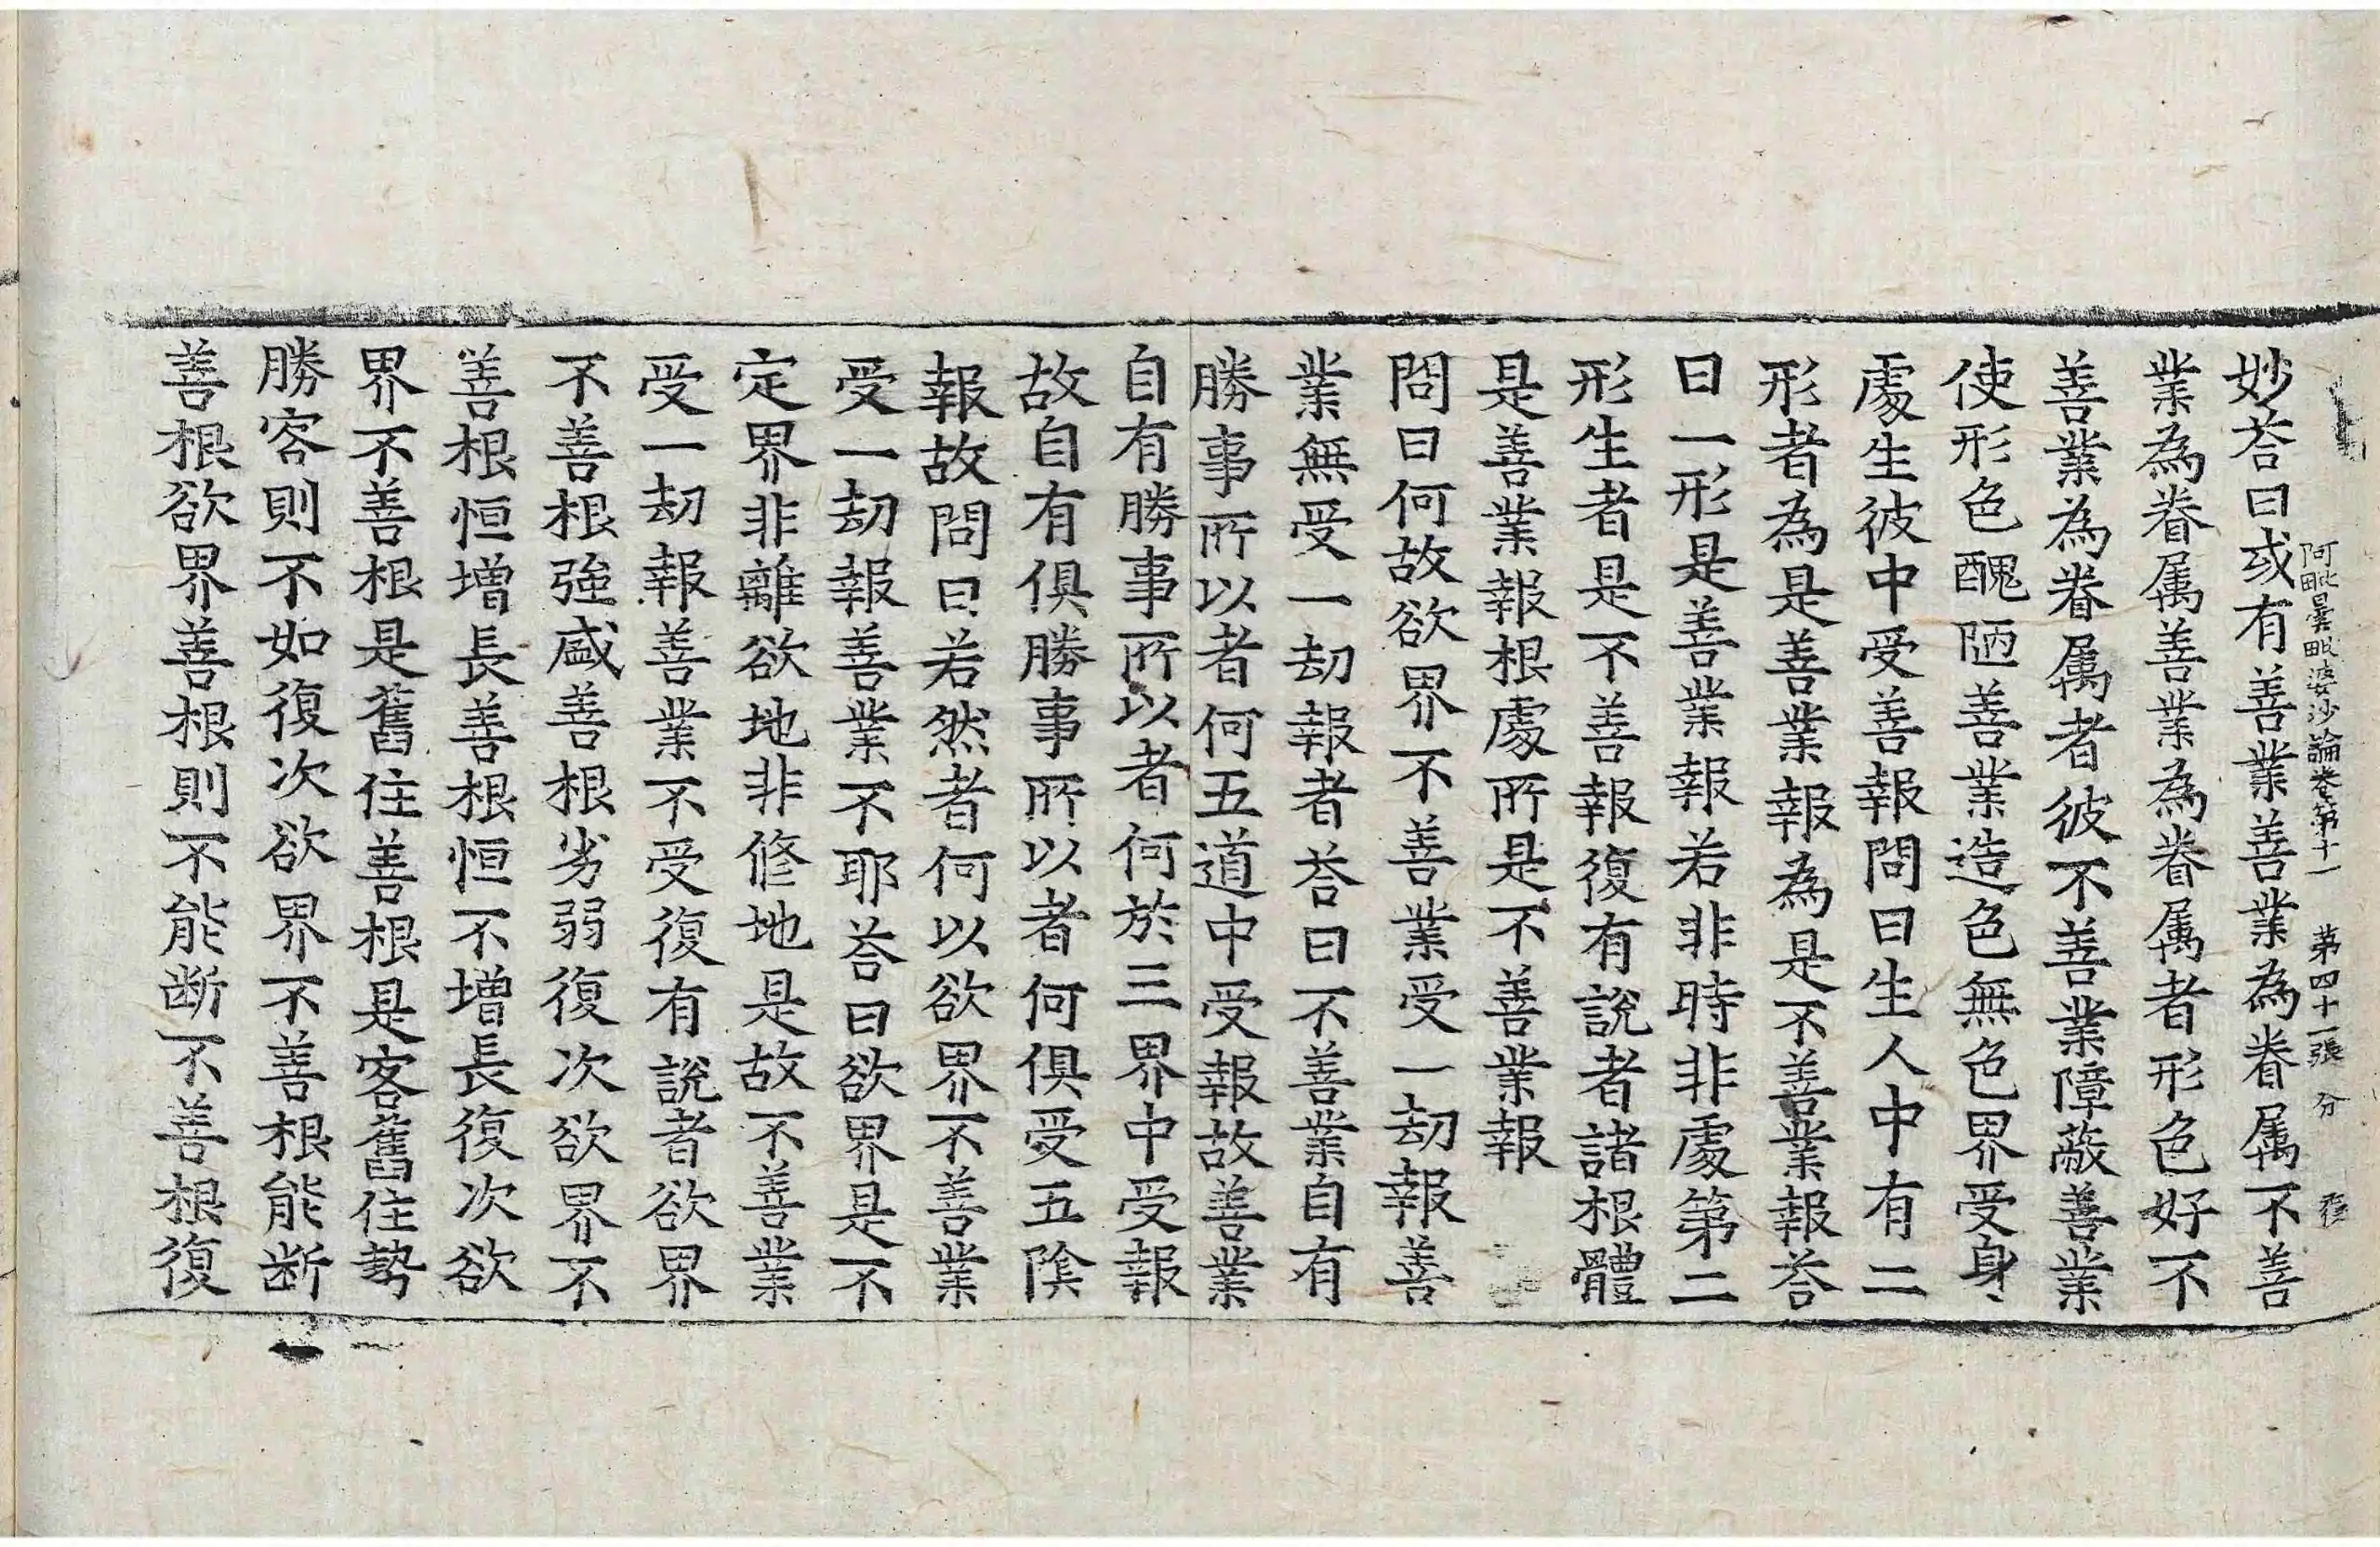 阿毗曇毗婆沙論卷第十一　第四十一張　分　
妙荅曰或有善業善業為眷属不善
業為眷属善業為眷属者形色好不
善業為眷属者彼不善業障蔽善業
使形色醜陋善業造色無色界受身
處生彼中受善報問曰生人中有二
形者為是善業報為是不善業報荅
曰一形是善業報若非時非處第二
形生者是不善報復有說者諸根體
是善業報根處所是不善業報
問曰何故欲界不善業受一劫報善
業無受一劫報者荅曰不善業自有
勝事所以者何五道中受報故善業
自有勝事所以者何於三界中受報
故自有俱勝事所以者何俱受五陰
報故問曰若然者何以欲界不善業
受一劫報善業不耶荅曰欲界是不
定界非離欲地非修地是故不善業
受一劫報善業不受復有說者欲界
不善根強盛善根劣弱復次欲界不
善根恒增長善根恒不增長復次欲
界不善根是舊住善根是客舊住勢
勝客則不如復次欲界不善根能断
善根欲界善根則不能断不善根復